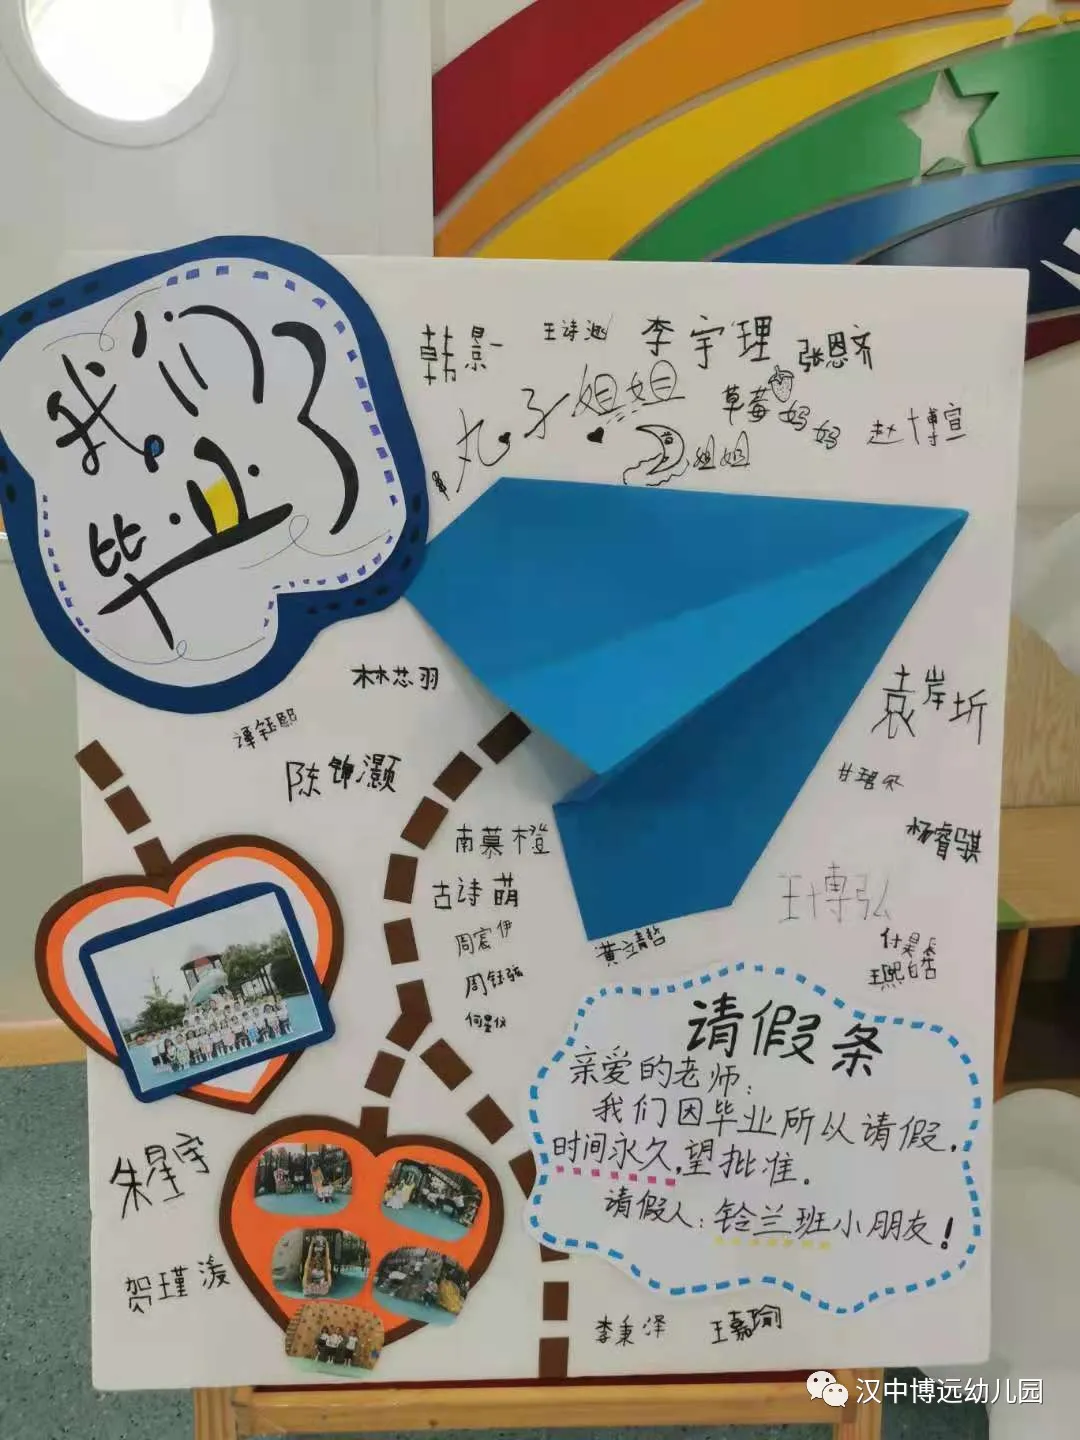 我们
毕业了
韩景一
王诗涵
李宇理
张恩齐
丸子姐姐
草莓妈妈
赵博宣
姐姐
林芯羽
谭钰熙
陈钟灏
袁岸圻
甘碧
杨睿骐
南慕橙
古诗萌
周宸伊
周钰
何星仪
王博弘
黄靖哲
付昊
王熙
请假条
亲爱的老师：
我们因毕业所以请假，
时间永久，望批准。
请假人：铃兰班小朋友！
朱星宇
贺瑾
李秉泽
王嘉瑜
汉中博远幼儿园